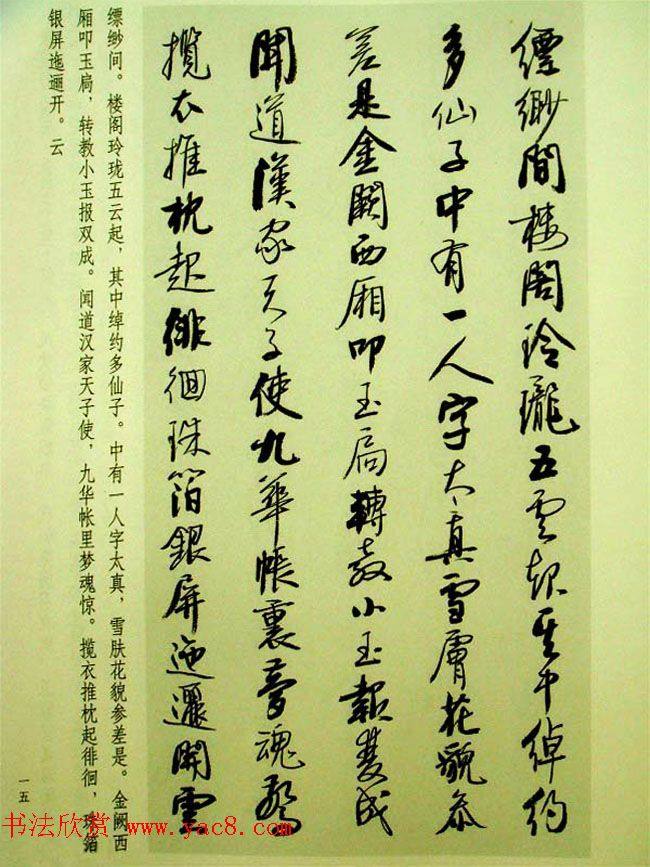 缥缈間樓閣玲瓏五雲起其中綽約
多仙子中有一人字太真雪膚花貌參
差是金闕西厢叩玉扃轉教小玉報雙成
聞道漢家天子使九華帳裏夢魂驚
攬衣推枕起徘徊珠箔銀屏迤邐開雲
缥缈间。楼阁玲珑五云起，其中绰约多仙子。中有一人字太真，雪肤花貌参差是。金阙西
厢叩玉扃，转教小玉报双成。闻道汉家天子使，九华帐里梦魂惊。揽衣推枕起徘徊，珠箔
银屏迤逦开。云
一五
书法欣赏 www.yac8.com